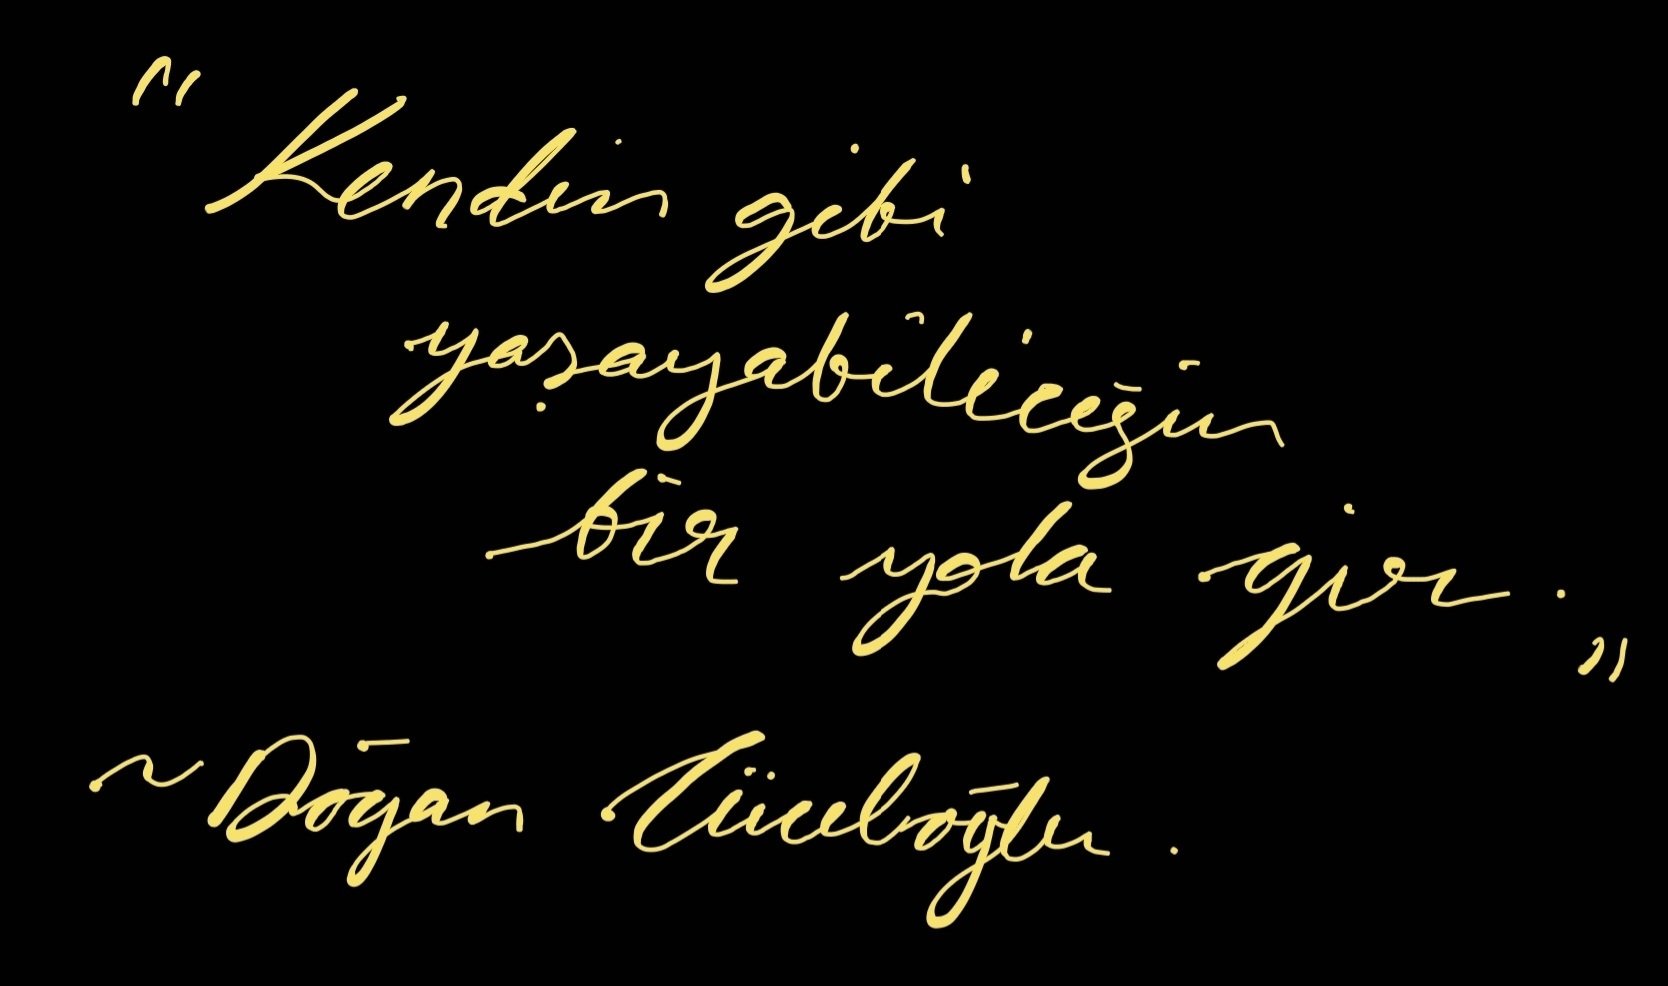 "Kendin gibi
yaşayabileceğin
bir yola gir.”
~ Doğan Cüceloğlu.